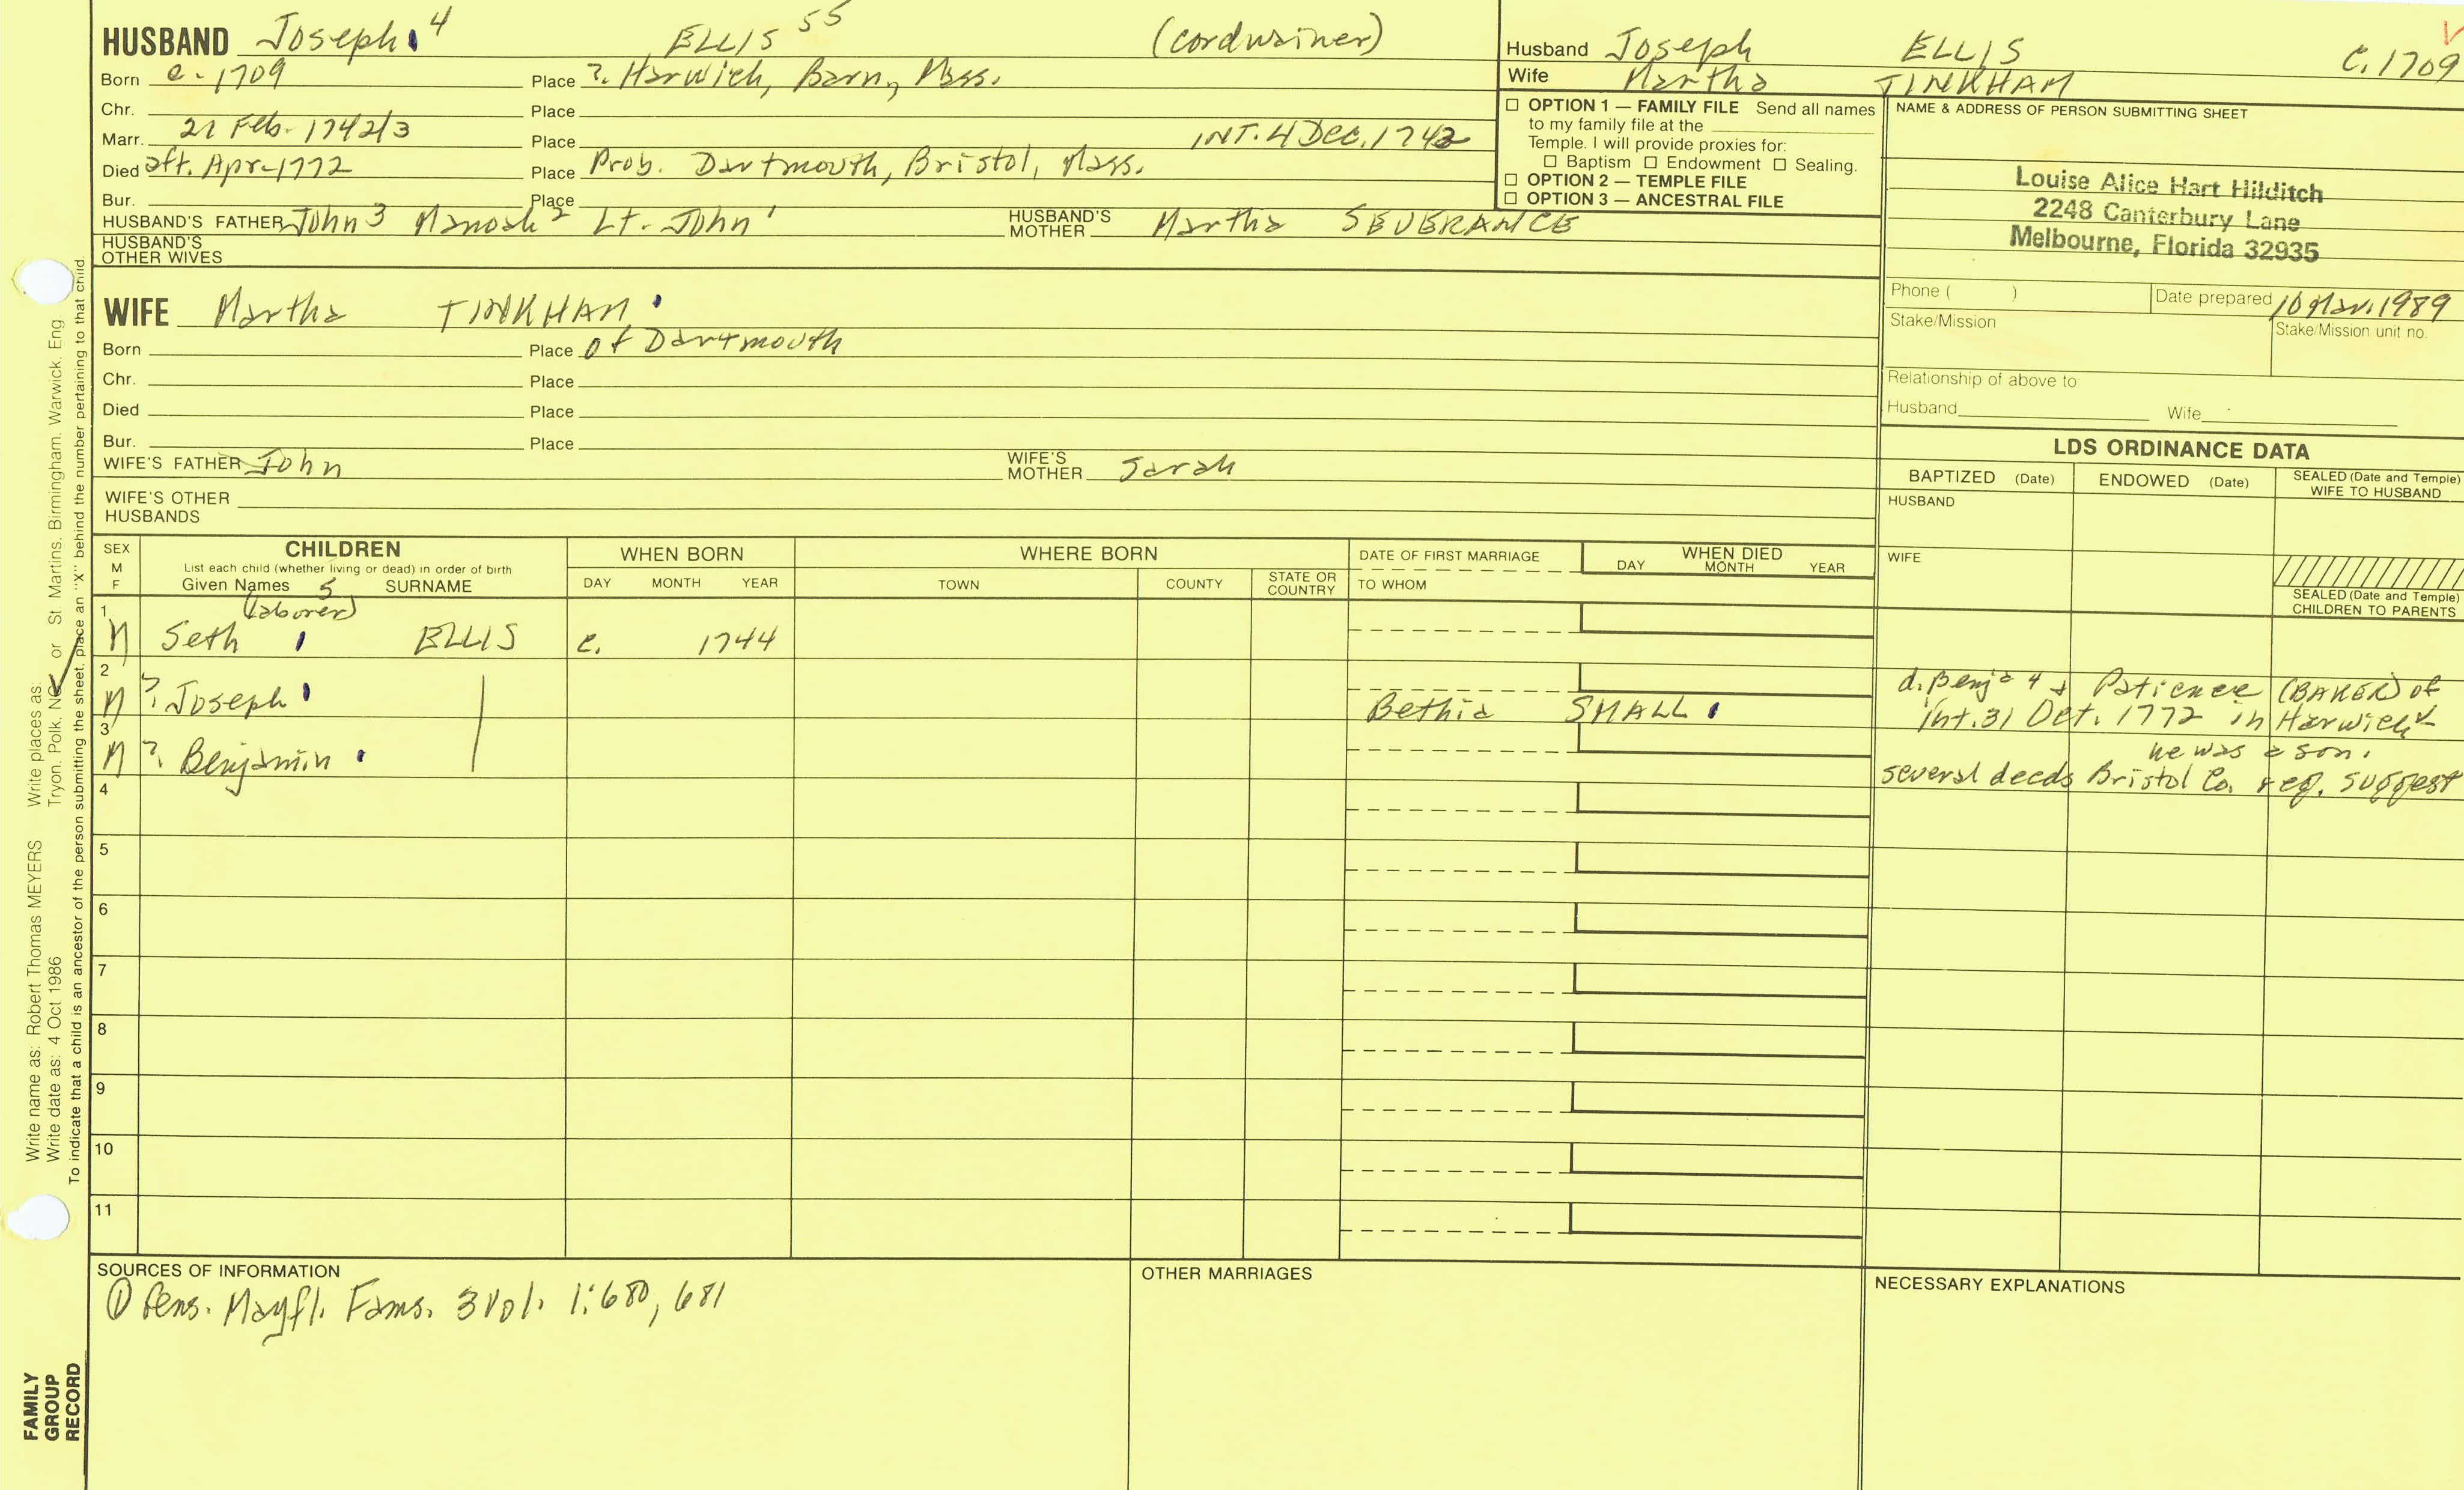 HUSBAND Joseph 4 ELLIS 55 (cordwainer)
Born c. 1709 Place ? Harwich, Barn, Mass.
Chr. Place
Marr. 21 Feb. 1742/3 Place INT. 4 Dec. 1742
Died aft. Apr. 1772 Place Prob. Dartmouth, Bristol, Mass.
Bur. Place
HUSBAND'S FATHER John 3 Manoah 2 Lt. John 1 HUSBAND'S MOTHER Martha SEVERANCE
HUSBAND'S OTHER WIVES
Husband Joseph ELLIS C. 1709
Wife Martha TINKHAM
☐ OPTION 1 — FAMILY FILE Send all names
to my family file at the
Temple. I will provide proxies for:
☐ Baptism ☐ Endowment ☐ Sealing.
☐ OPTION 2 — TEMPLE FILE
☐ OPTION 3 — ANCESTRAL FILE
NAME & ADDRESS OF PERSON SUBMITTING SHEET
Louise Alice Hart Hilditch
2248 Canterbury Lane
Melbourne, Florida 32935
Phone ( ) Date prepared 10 Mar. 1989
Stake/Mission Stake/Mission unit no.
Relationship of above to
Husband Wife
WIFE Martha TINKHAM
Born Place of Dartmouth
Chr. Place
Died Place
Bur. Place
WIFE'S FATHER John WIFE'S MOTHER Sarah
WIFE'S OTHER HUSBANDS
LDS ORDINANCE DATA
BAPTIZED (Date) ENDOWED (Date) SEALED (Date and Temple) WIFE TO HUSBAND
HUSBAND
WIFE
SEALED (Date and Temple) CHILDREN TO PARENTS
SEX M F
CHILDREN
List each child (whether living or dead) in order of birth
Given Names 5 SURNAME
WHEN BORN
DAY MONTH YEAR
WHERE BORN
TOWN COUNTY STATE OR COUNTRY
DATE OF FIRST MARRIAGE
TO WHOM
WHEN DIED
DAY MONTH YEAR
(laborer)
1 M Seth ELLIS c. 1744
2 M ? Joseph Bethia SMALL d. Benja 4 & Patience (BAKER) of
int. 31 Oct. 1772 in Harwich
3 M ? Benjamin he was a son.
several deeds Bristol Co. reg. suggest
4
5
6
7
8
9
10
11
SOURCES OF INFORMATION
① Gens. Mayfl. Fams. 3 Vol. 1:680, 681
OTHER MARRIAGES
NECESSARY EXPLANATIONS
Write name as: Robert Thomas MEYERS Write places as:
Write date as: 4 Oct 1986 Tryon, Polk, NC or St. Martins, Birmingham, Warwick, Eng
To indicate that a child is an ancestor of the person submitting the sheet, place an "X" behind the number pertaining to that child.
FAMILY
GROUP
RECORD